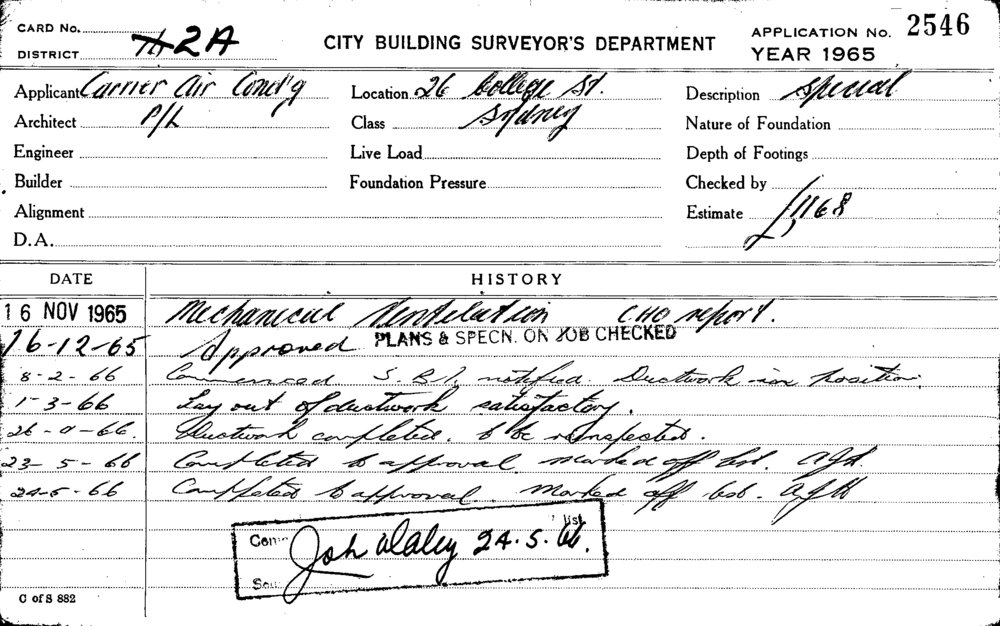 CARD No.
DISTRICT 2A
CITY BUILDING SURVEYOR'S DEPARTMENT
APPLICATION No. 2546
YEAR 1965
Applicant Carrier Air Cond'g Location 26 College St. Description Special
Architect P/L Class Sydney Nature of Foundation
Engineer Live Load Depth of Footings
Builder Foundation Pressure Checked by
Alignment Estimate £1,168
D.A.
DATE HISTORY
16 NOV 1965 Mechanical Ventilation CHO report.
16-12-65 Approved PLANS & SPECN. ON JOB CHECKED
8-2-66 Commenced S.B.I. notified. Ductwork in position.
1-3-66 Lay out of ductwork satisfactory.
26-4-66. Ductwork completed. to be reinspected.
23-5-66 Completed to approval marked off list.
24-5-66 Completed to approval. Marked off list. AJH
list
Joh Daley 24.5.66.
C of S 882